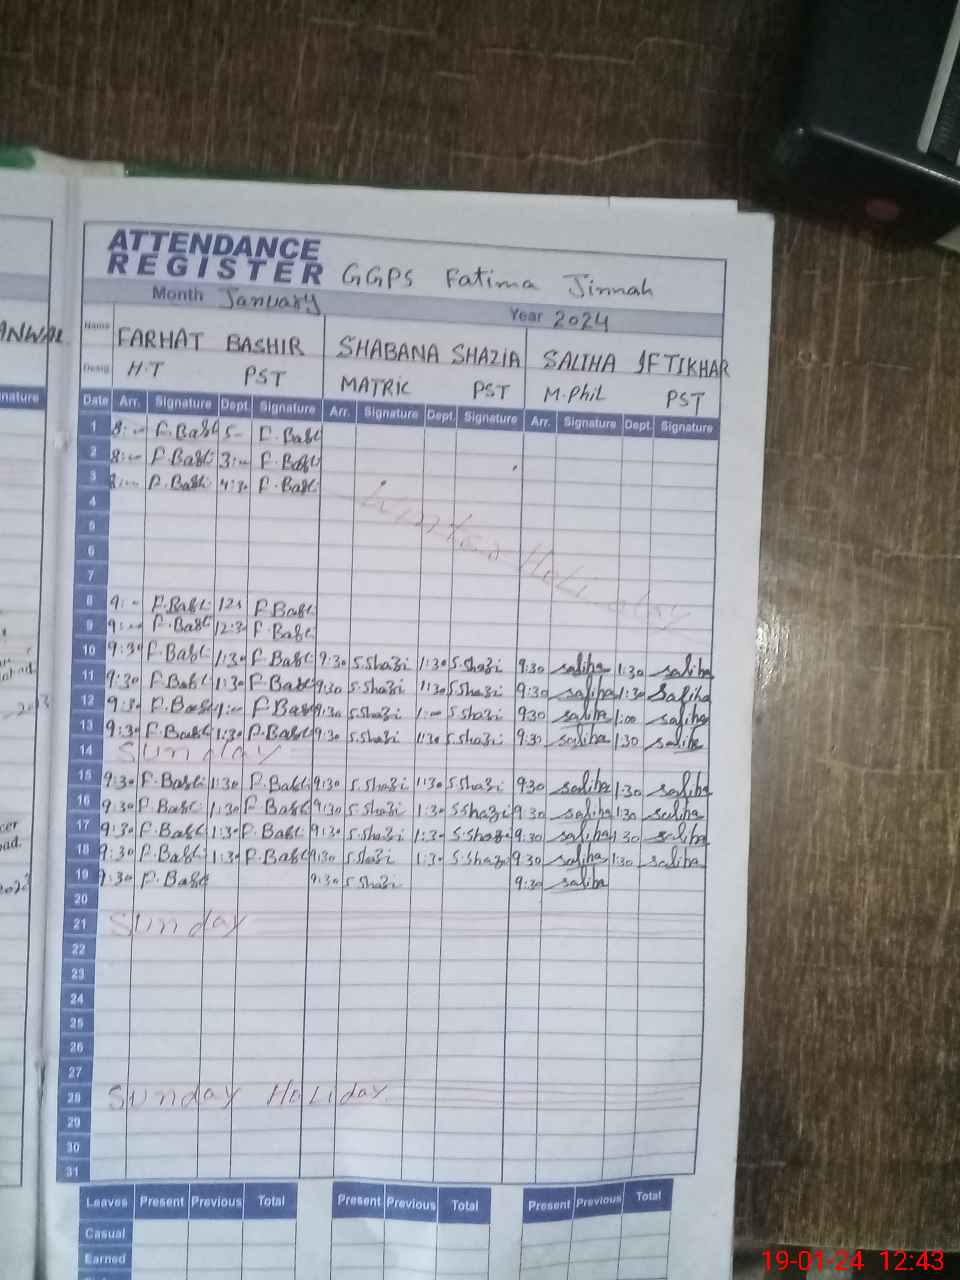 ATTENDANCE
REGISTER GGPS Fatima Jinnah
Month January Year 2024
ANWAL
Name FARHAT BASHIR SHABANA SHAZIA SALIHA IFTIKHAR
Desig. H.T PST MATRIC PST M.Phil PST
nature
Date Arr. Signature Dept. Signature Arr. Signature Dept. Signature Arr. Signature Dept. Signature
1 8:- F.Bash 5- F.Bash
2 8:- F.Bash 3:- F.Bash
3 8:- F.Bash 4:30 F.Bash
4 Winter Holiday
5
6
7
8 9:- F.Bash F.Bash
9 9:- F.Bash 12:30 F.Bash
10 9:30 F.Bash 1:30 F.Bash 9:30 S.Shazi 1:30 S.Shazi 9:30 saliha 1:30 saliha
11 9:30 F.Bash 1:30 F.Bash 9:30 S.Shazi 1:30 S.Shazi 9:30 saliha 1:30 saliha
12 9:30 F.Bash 1:00 F.Bash 9:30 S.Shazi 1:00 S.Shazi 9:30 saliha 1:00 saliha
13 9:30 F.Bash 1:30 F.Bash 9:30 S.Shazi 1:30 S.Shazi 9:30 saliha 1:30 saliha
14 Sunday
15 9:30 F.Bash 1:30 F.Bash 9:30 S.Shazi 1:30 S.Shazi 9:30 saliha 1:30 saliha
16 9:30 F.Bash 1:30 F.Bash 9:30 S.Shazi 1:30 S.Shazi 9:30 saliha 1:30 saliha
17 9:30 F.Bash 1:30 F.Bash 9:30 S.Shazi 1:30 S.Shazi 9:30 saliha 1:30 saliha
18 9:30 F.Bash 1:30 F.Bash 9:30 S.Shazi 1:30 S.Shazi 9:30 saliha 1:30 saliha
19 9:30 F.Bash 9:30 S.Shazi 9:30 saliha
20
21 Sunday
22
23
24
25
26
27
28 Sunday Holiday
29
30
31
Leaves Present Previous Total Present Previous Total Present Previous Total
Casual
Earned
19-01-24 12:43